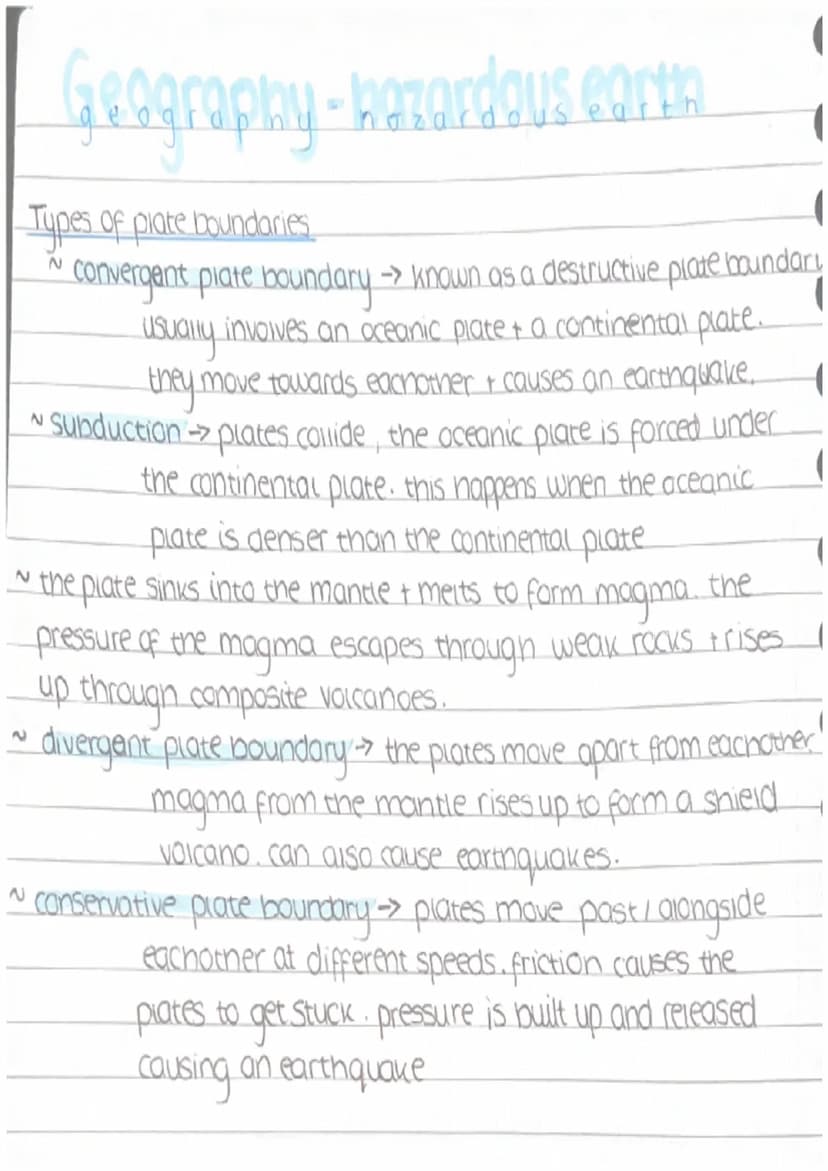 Geography - hazardous earth
geography hazardous earth
Types of plate boundaries
~ convergent plate boundary → known as a destructive plate boundary
usually involves an oceanic plate + a continental plate.
they move towards eachother + causes an earthquake.
~ subduction → plates collide, the oceanic plate is forced under
the continental plate. this happens when the oceanic
plate is denser than the continental plate
~ the plate sinks into the mantle + melts to form magma. the
pressure of the magma escapes through weak rocks + rises
up through composite volcanoes.
~ divergent plate boundary → the plates move apart from eachother.
magma from the mantle rises up to form a shield
volcano. can also cause earthquakes.
~ conservative plate boundary → plates move past / alongside
eachother at different speeds. friction causes the
plates to get stuck. pressure is built up and released
causing an earthquake